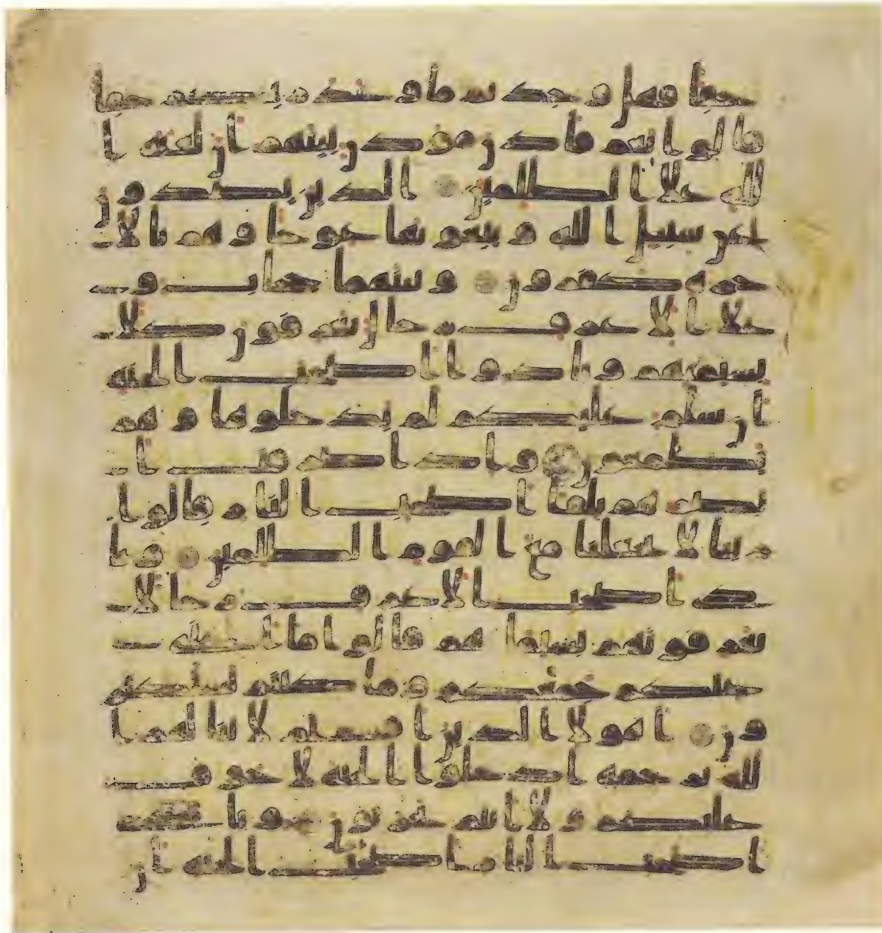 حقا فهل وجدتم ما وعد ربكم حقا
قالوا نعم فاذن موذن بينهم ان لعنه ا
لله علا الظلمين الذين يصدون
عن سبيل الله ويبغونها عوجا وهم بالا
خره كفرون وبينهما حجاب و
علا الاعرف رجال يعرفون كلا
بسيمهم ونادوا اصحب الجنه
ان سلم عليكم لم يدخلوها وهم
يطمعون واذا صرفت ا
بصرهم تلقا اصحب النار قالوا
ربنا لا تجعلنا مع القوم الظلمين ونا
دى اصحب الاعرف رجالا
يعرفونهم بسيماهم قالوا ما اغنى
عنكم جمعكم وما كنتم تستكبر
ون اهولا الذين اقسمتم لا ينالهم ا
لله برحمه ادخلوا الجنه لا خوف
عليكم ولا انتم تحزنون ونادى
اصحب النار اصحب الجنه ان